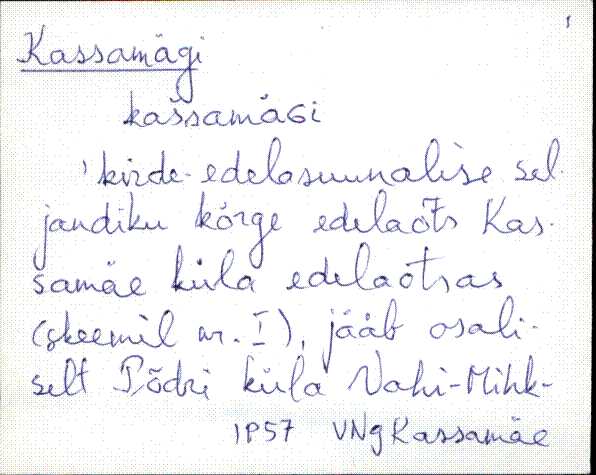 Kassamägi
kaššamäGi
'kirde-edelasuunalise sel-
jandiku kõrge edelaots Kas-
samäe küla edelaotsas
(skeemil nr. I), jääb osali-
selt Põdri küla Vahi-Mihk-
1957 VNg Kassamäe